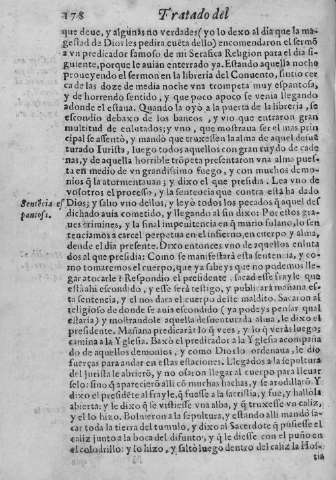 178 Tratado del
que deue, y algunas no verdades (y yo lo dexo al dia que la ma-
gestad de Dios les pedira cuēta dello) encomendaron el sermō
a vn predicador famoso de mi Serafica Religion para el dia si-
guiente, porque le auian enterrado ya. Estando aquella noche
proueyendo el sermon en la libreria del Conuento, sintio cer-
ca de las doze de media noche vna trompeta muy espantosa,
y de horrendo sentido, y que poco apoco se venia llegando
adonde el estaua. Quando la oyò a la puerta de la libreria, se
escondio debaxo de los bancos, y vio que entraron gran
multitud de enlutados; y vno, que mostraua ser el mas prin
cipal se assentò, y mandò que truxessen la alma de aquel
turado Iurista, y luego todos aquellos con gran ruydo de cade
nas, y de aquella horrible trōpeta presentaron vna alma pues-
ta en medio de vn grandissimo fuego, y con muchos demo-
nios q̃ la atormentauan; y dixo el que presidia. Lea vno de
vosotros el processo, y la sentencia que contra està ha dado
Sentēcia es Dios; y salio vno dellos, y leyò todos los pecados q̃ aquel des
pantosa. dichado auia cometido, y llegando al fin dixo: Por estos gra-
ues crimines, y la final impenitencia en q̃ murio fulano, lo sen
tenciamos a carcel perpetua en el infierno, en cuerpo y alma,
desde el dia presente. Dixo entonces vno de aquellos enluta
dos al que presidia: Como se manifestarà esta sentencia, y co-
mo tomaremos el cuerpo, que ya sabeys que no podemos lle-
gar a tocarle? Respondio el presidente. sacad esse frayle que
està ahi escondido, y esse serà testigo, y publicarà mañana es-
ta sentencia, y el nos dara el cuerpo deste maldito. Sacaron al
religioso de donde se auia escondido (ya podys pensar qual
estaria) y mostrandole aquella desuenturada alma, le dixo el
presidente. Mañana predicaràs lo q̃ vees, y lo q̃ veràs luego;
camina a la Yglesia. Baxò el predicador a la Yglesia acompaña
do de aquellos demonios, y como Dios lo ordenaua, le dio
fuerças para andar en estas estaciones. Llegados a la sepultura
del Iurista le abrierō, y no osaron llegar al cuerpo para lleuar
selo: sino q̃ aparecierō alli cō muchas hachas, y se arodillarō. Y
dixo el presidēte al frayle, q̃ fuesse a la sacristia, y fue, y hallola
abierta, y le dixo q̃ se vistiesse vna alba, y q̃ truxesse vn caliz,
y el lo hizo. Boluieron a la sepultura, y estando alli mandò sa-
car toda la tierra del tumulo, y dixo al Sacerdote q̃ pusiesse el
caliz junto a la boca del difunto, y q̃ le diesse con el puño en
el colodrillo: y lo hizo, y saltò luego dentro del caliz la Hos-
tia